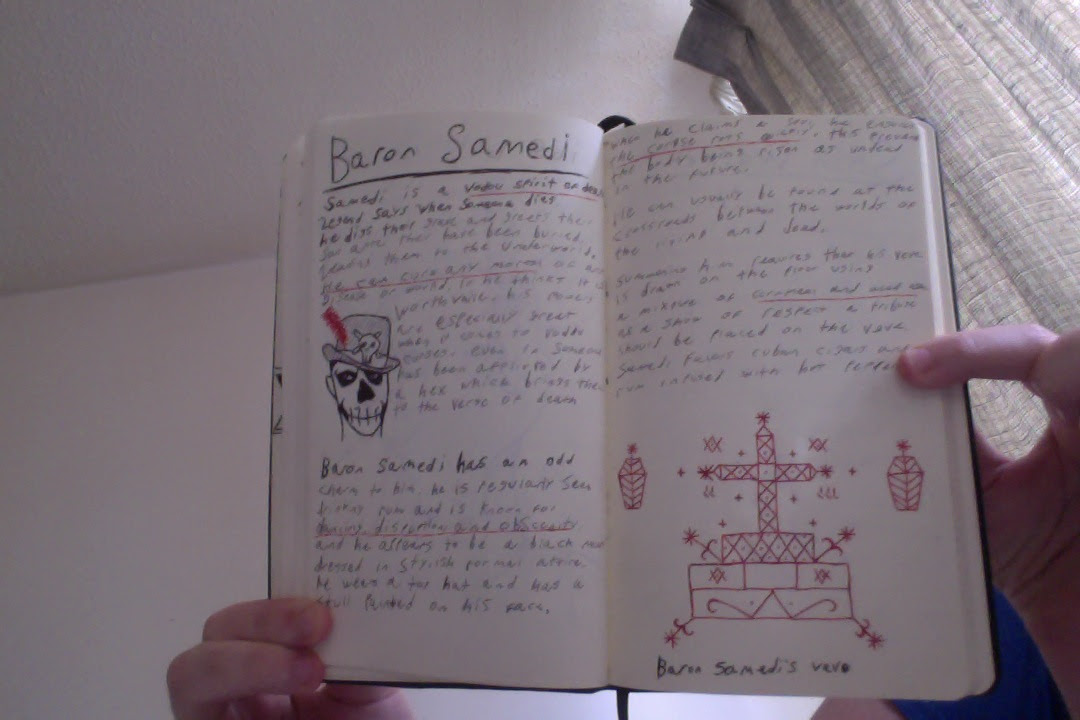 Baron Samedi
Samedi is a vodou spirit of death
Legend says when someone dies
he digs their grave and greets their
soul after they have been buried
leading them to the underworld.
He can cure any mortal of any
disease or wound if he thinks it is
worthwhile. his powers
are especially great
when it comes to vodou
curses. even if someone
has been afflicted by
a hex which brings them
to the verge of death
Baron Samedi has an odd
charm to him. he is regularly seen
drinking rum and is known for
dancing, disruption and obscenity
and he appears to be a black man
dressed in stylish formal attire.
he wears a top hat and has a
skull painted on his face.
when he claims a soul he ensures
the corpse rots quickly. this prevents
the body being risen as undead
in the future.
He can usually be found at the
crossroads between the worlds of
the living and dead.
summoning him requires that his veve
is drawn on the floor using
a mixture of cornmeal and wood ash
as a show of respect a tribute
should be placed on the veve
Samedi favors cuban cigars and
rum infused with hot peppers
Baron Samedi's veve